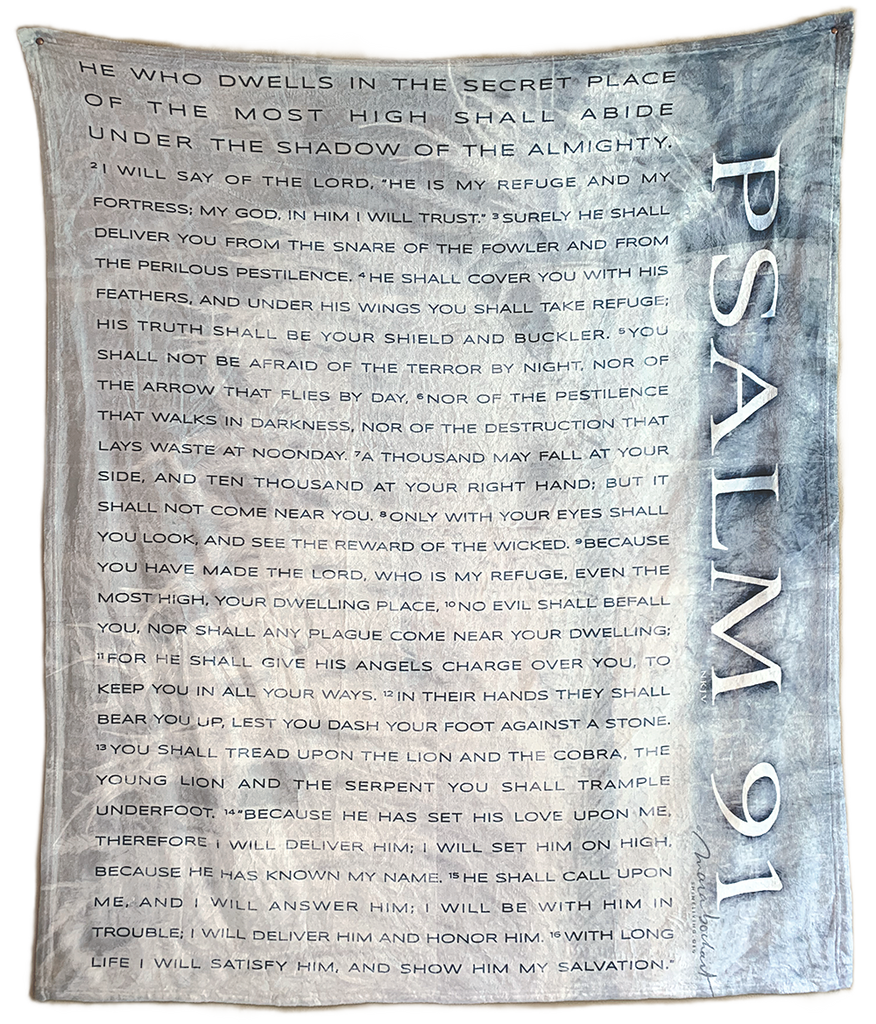 HE WHO DWELLS IN THE SECRET PLACE
OF THE MOST HIGH SHALL ABIDE
UNDER THE SHADOW OF THE ALMIGHTY.
² I WILL SAY OF THE LORD, "HE IS MY REFUGE AND MY
FORTRESS; MY GOD, IN HIM I WILL TRUST." ³ SURELY HE SHALL
DELIVER YOU FROM THE SNARE OF THE FOWLER AND FROM
THE PERILOUS PESTILENCE. ⁴ HE SHALL COVER YOU WITH HIS
FEATHERS, AND UNDER HIS WINGS YOU SHALL TAKE REFUGE;
HIS TRUTH SHALL BE YOUR SHIELD AND BUCKLER. ⁵ YOU
SHALL NOT BE AFRAID OF THE TERROR BY NIGHT, NOR OF
THE ARROW THAT FLIES BY DAY, ⁶ NOR OF THE PESTILENCE
THAT WALKS IN DARKNESS, NOR OF THE DESTRUCTION THAT
LAYS WASTE AT NOONDAY. ⁷ A THOUSAND MAY FALL AT YOUR
SIDE, AND TEN THOUSAND AT YOUR RIGHT HAND; BUT IT
SHALL NOT COME NEAR YOU. ⁸ ONLY WITH YOUR EYES SHALL
YOU LOOK, AND SEE THE REWARD OF THE WICKED. ⁹ BECAUSE
YOU HAVE MADE THE LORD, WHO IS MY REFUGE, EVEN THE
MOST HIGH, YOUR DWELLING PLACE, ¹⁰ NO EVIL SHALL BEFALL
YOU, NOR SHALL ANY PLAGUE COME NEAR YOUR DWELLING;
¹¹ FOR HE SHALL GIVE HIS ANGELS CHARGE OVER YOU, TO
KEEP YOU IN ALL YOUR WAYS. ¹² IN THEIR HANDS THEY SHALL
BEAR YOU UP, LEST YOU DASH YOUR FOOT AGAINST A STONE.
¹³ YOU SHALL TREAD UPON THE LION AND THE COBRA, THE
YOUNG LION AND THE SERPENT YOU SHALL TRAMPLE
UNDERFOOT. ¹⁴ "BECAUSE HE HAS SET HIS LOVE UPON ME,
THEREFORE I WILL DELIVER HIM; I WILL SET HIM ON HIGH,
BECAUSE HE HAS KNOWN MY NAME. ¹⁵ HE SHALL CALL UPON
ME, AND I WILL ANSWER HIM; I WILL BE WITH HIM IN
TROUBLE; I WILL DELIVER HIM AND HONOR HIM. ¹⁶ WITH LONG
LIFE I WILL SATISFY HIM, AND SHOW HIM MY SALVATION."
PSALM 91
NKJV